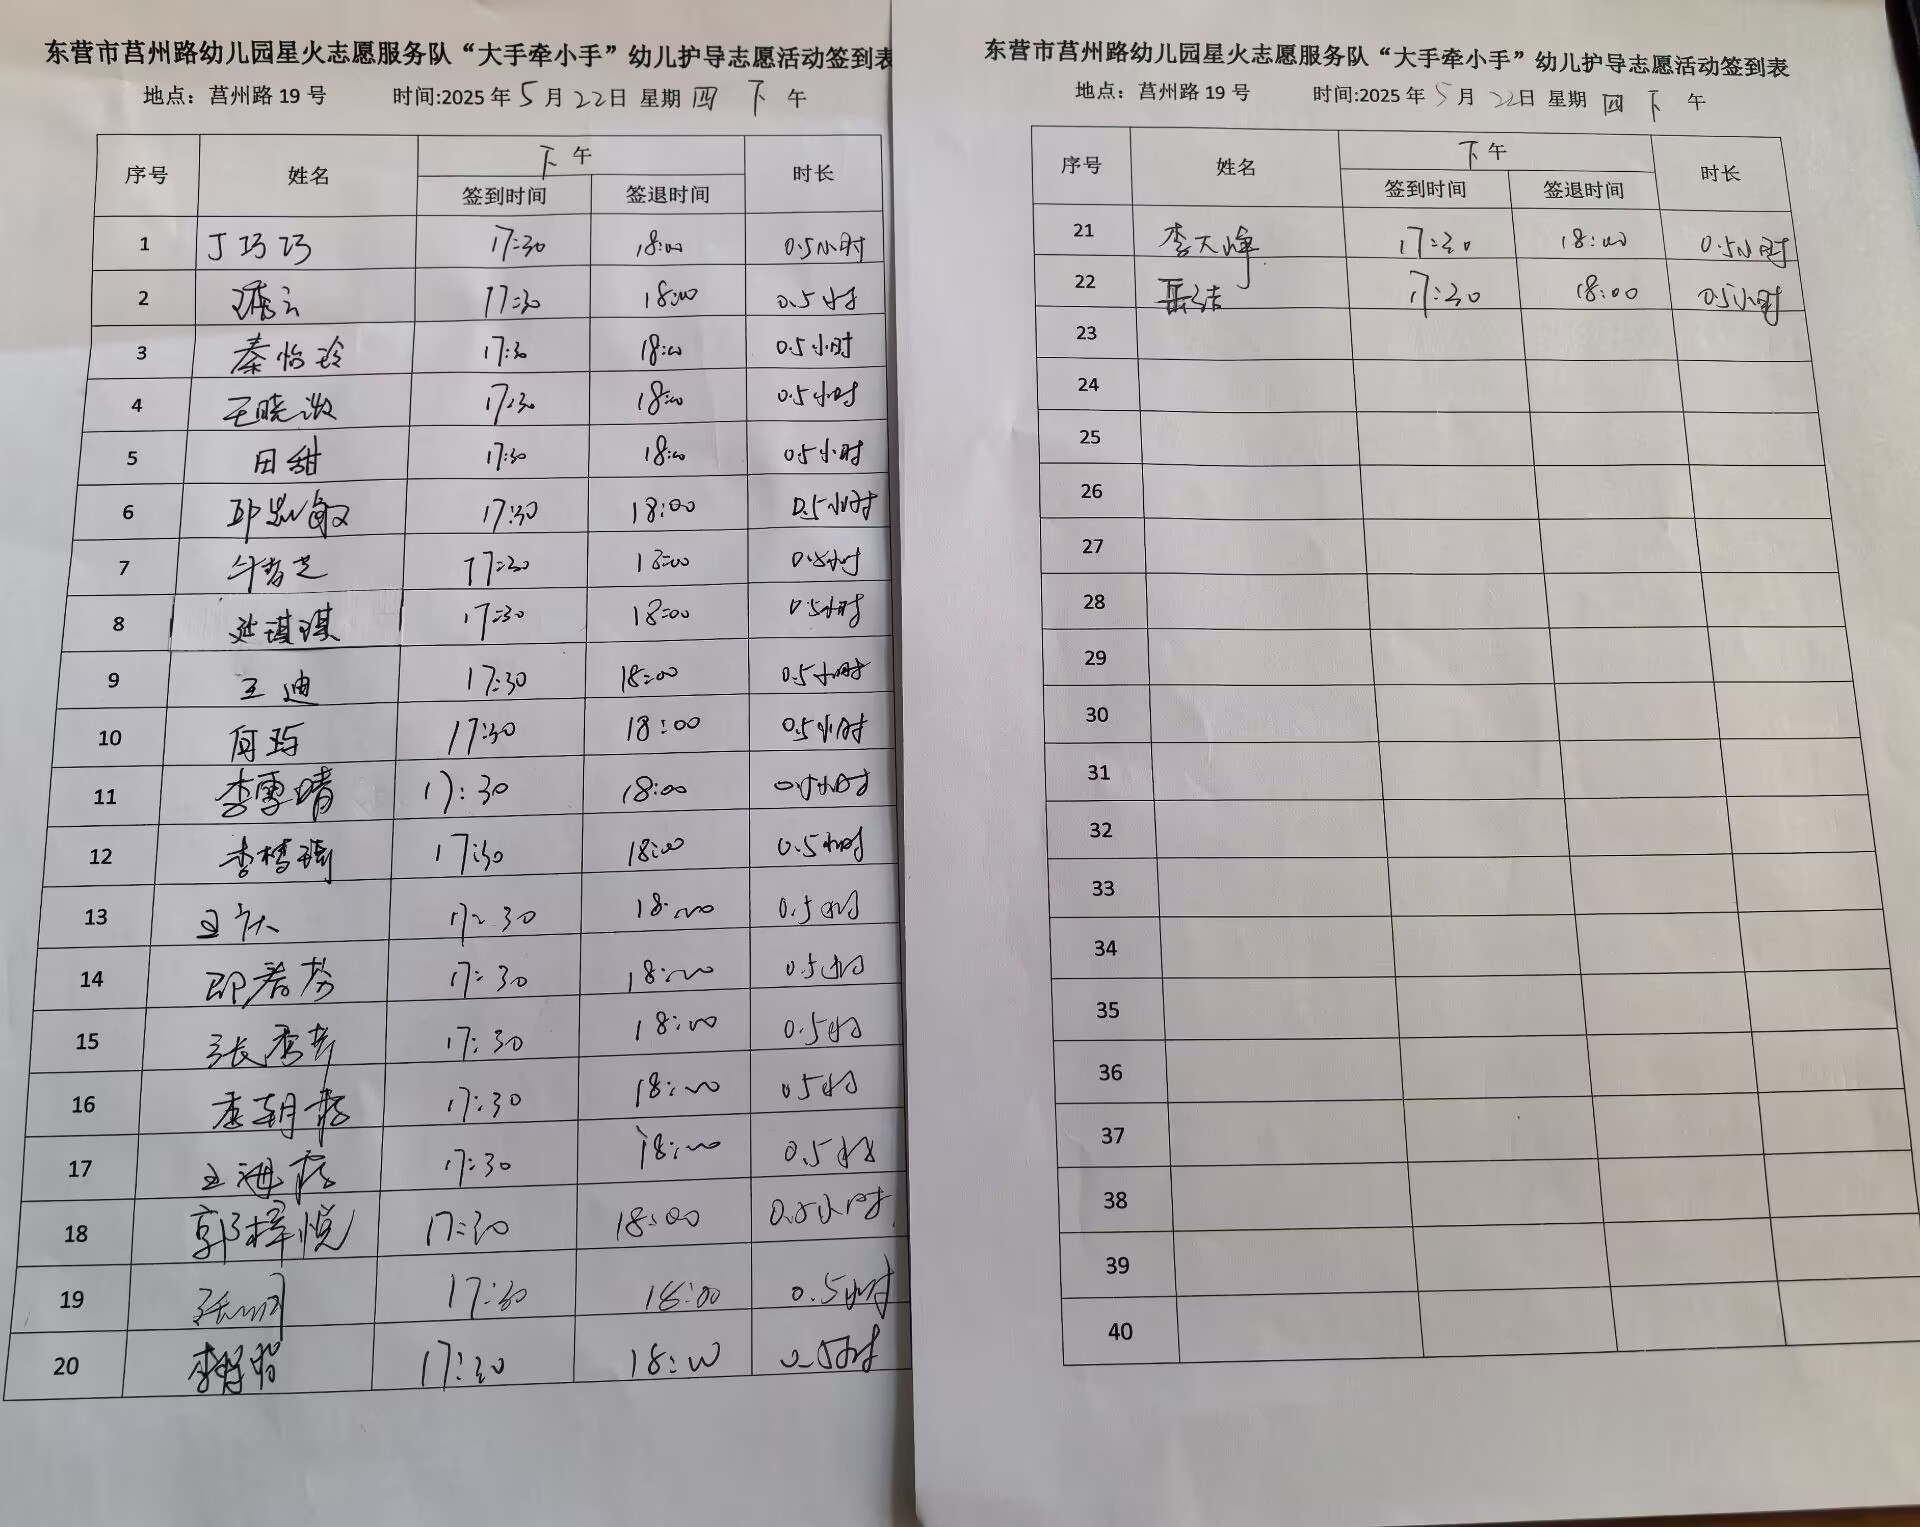 东营市莒州路幼儿园星火志愿服务队“大手牵小手”幼儿护导志愿活动签到表
地点：莒州路 19 号 时间:2025 年 5 月 22日 星期 四 下 午
序号 姓名 下 午 时长
签到时间 签退时间
1 丁巧巧 17:30 18:00 0.5小时
2 17:30 18:00 0.5小时
3 秦怡玲 17:30 18:00 0.5小时
4 王晓 17:30 18:00 0.5小时
5 田甜 17:30 18:00 0.5小时
6 17:30 18:00 0.5小时
7 17:30 18:00 0.5小时
8 琪琪 17:30 18:00 0.5小时
9 王迪 17:30 18:00 0.5小时
10 何 17:30 18:00 0.5小时
11 李雪晴 17:30 18:00 0.5小时
12 李 17:30 18:00 0.5小时
13 王 17:30 18:00 0.5小时
14 17:30 18:00 0.5小时
15 张 17:30 18:00 0.5小时
16 17:30 18:00 0.5小时
17 王 17:30 18:00 0.5小时
18 郭梓悦 17:30 18:00 0.5小时
19 张 17:30 18:00 0.5小时
20 李 17:30 18:00 0.5小时
东营市莒州路幼儿园星火志愿服务队“大手牵小手”幼儿护导志愿活动签到表
地点：莒州路 19 号 时间:2025 年 5 月 22日 星期 四 下 午
序号 姓名 下 午 时长
签到时间 签退时间
21 李天峰 17:30 18:00 0.5小时
22 岳洁 17:30 18:00 0.5小时
23
24
25
26
27
28
29
30
31
32
33
34
35
36
37
38
39
40